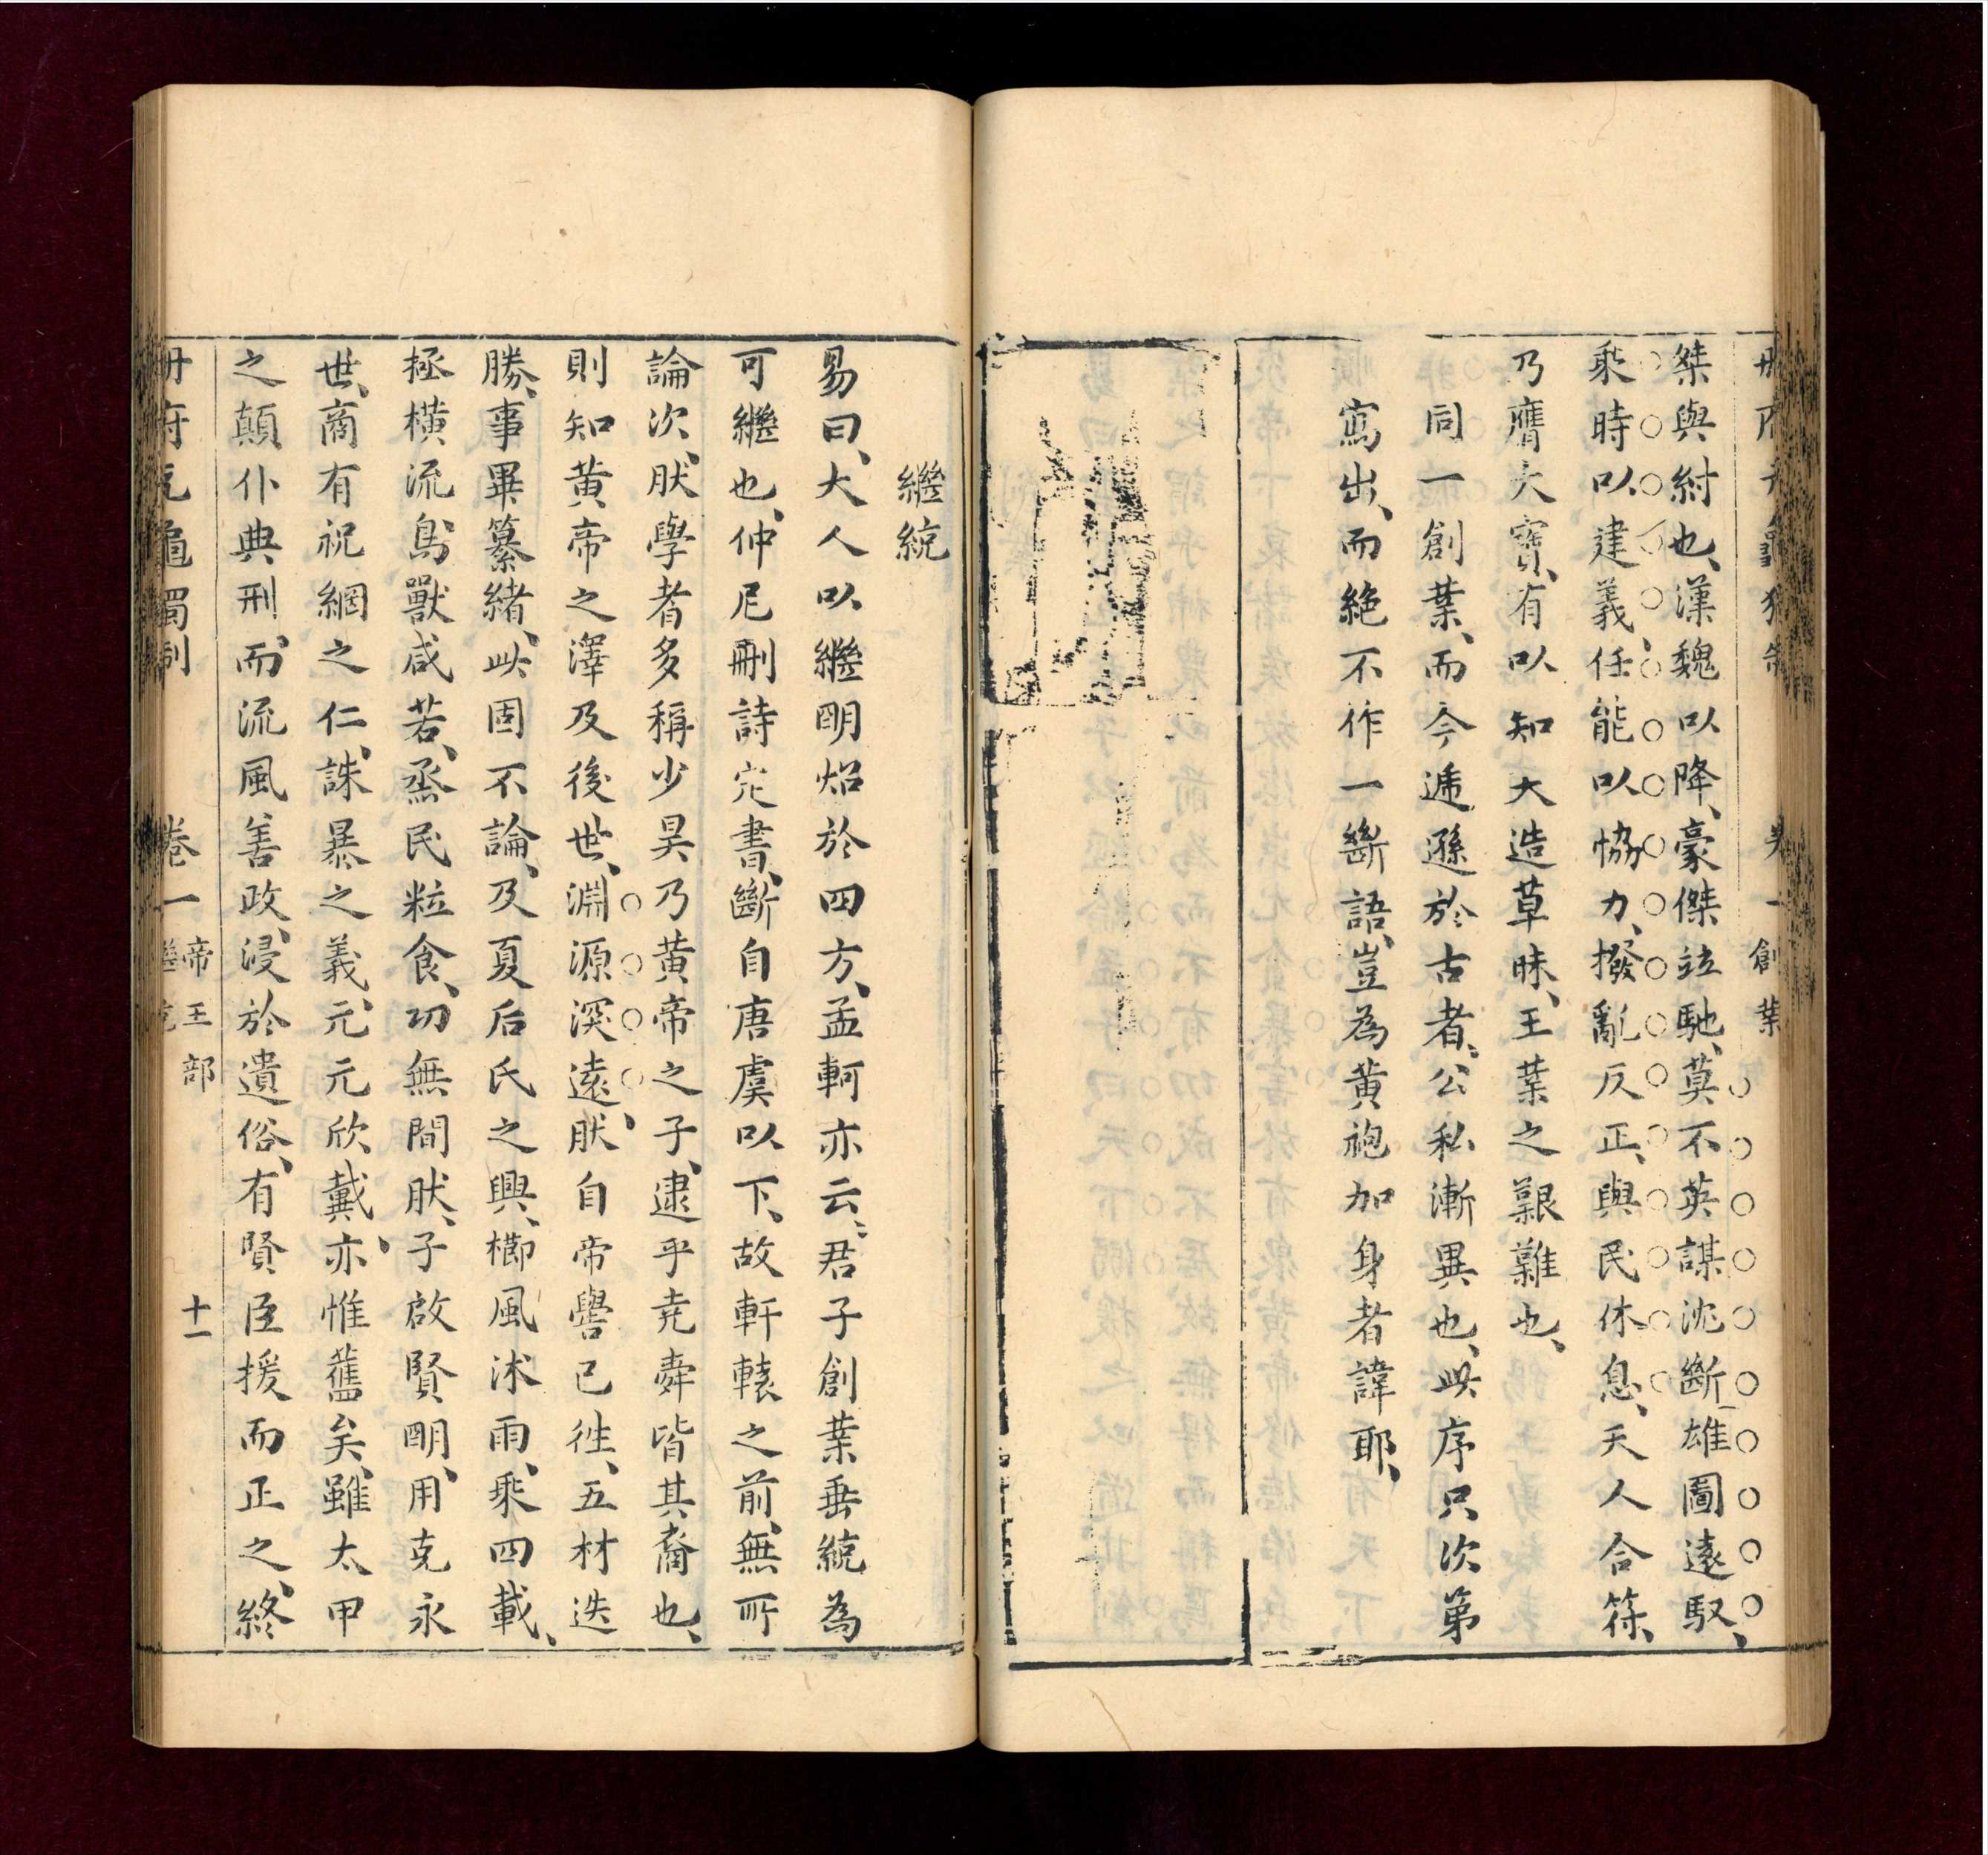 桀與紂也漢魏以降豪傑竝馳莫不英謀沈斷雄圖遠馭
乘時以建義任能以恊力撥亂反正與民休息天人合符
乃膺大寶有以知大造草昧王業之艱難也
同一創業而今遞遜於古者公私漸異也此序只次第
寫出而絶不作一斷語豈為黄袍加身者諱耶
繼統
易曰大人以繼明炤於四方孟軻亦云君子創業垂統為
可繼也仲尼刪詩定書斷自唐虞以下故軒轅之前無所
論次肰學者多稱少昊乃黄帝之子逮乎尭舜皆其裔也
則知黄帝之澤及後世淵源深遠肰自帝嚳已徃五材迭
勝事畢纂緒此固不論及夏后氏之興櫛風沐雨乘四載
拯橫流鳥獸咸若烝民粒食功無間肰子啟賢明用克永
世商有祝綱之仁誅暴之義元元欣戴亦惟舊矣雖太甲
之顛仆典刑而流風善政浸於遺俗有賢臣援而正之終
冊府元龜獨制 卷一 帝王部 繼統 十一